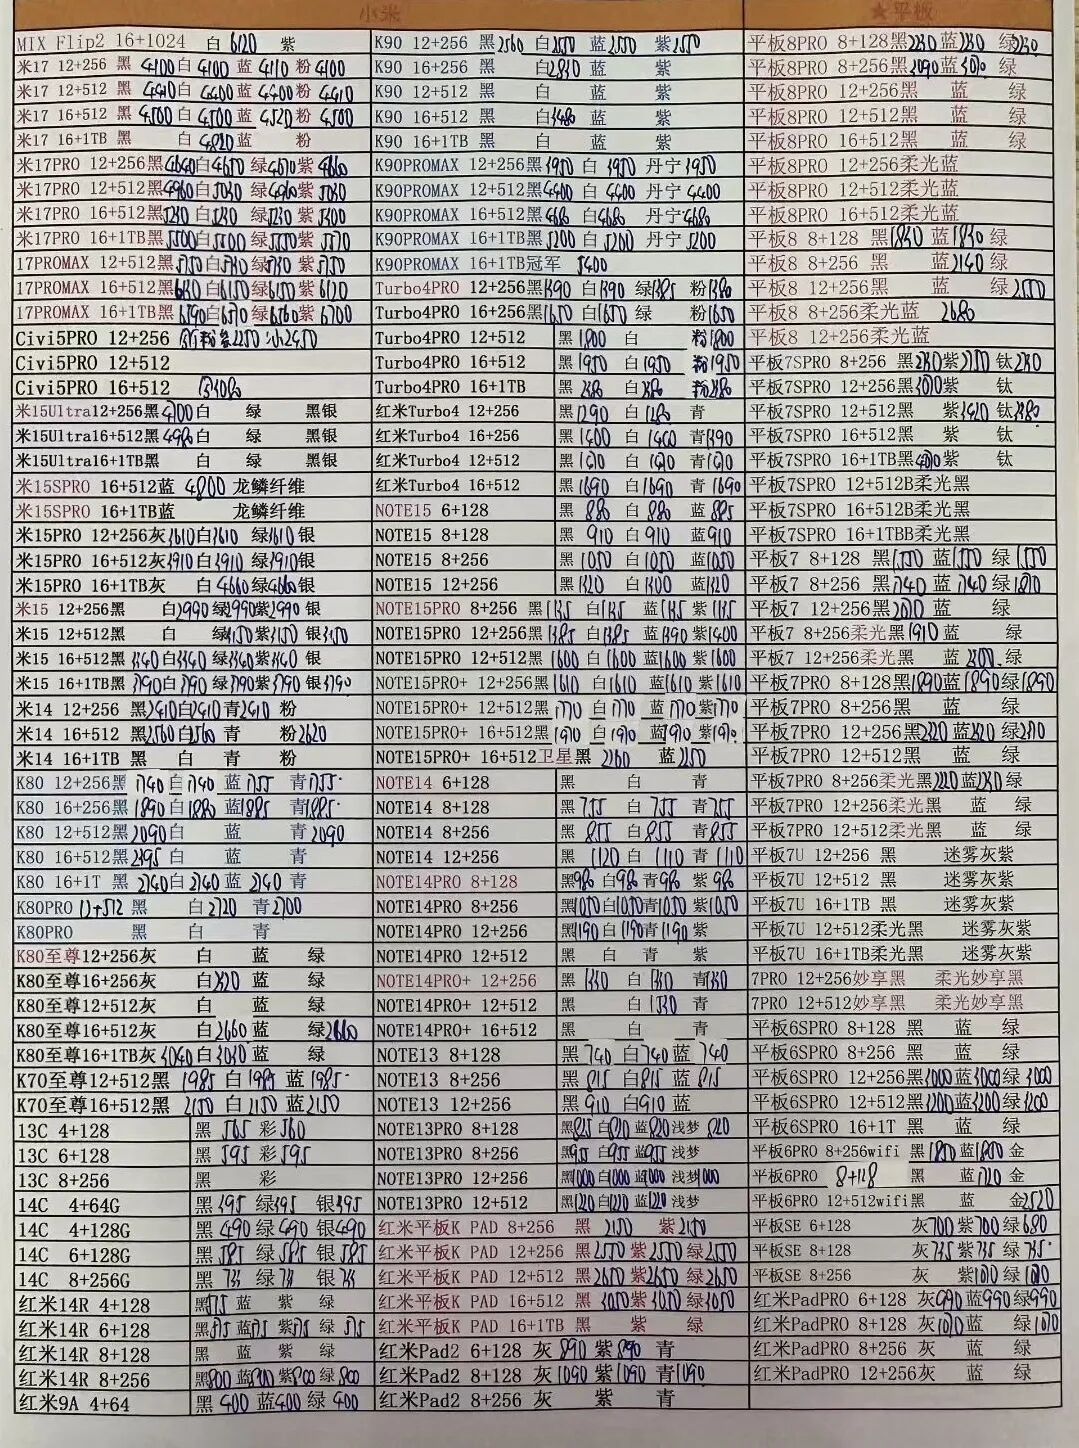 小米
MIX Flip2 16+1024 白 6120 紫
米17 12+256 黑 4100 白 4100 蓝 4110 粉 4100
米17 12+512 黑 4410 白 4400 蓝 4400 粉 4410
米17 16+512 黑 4500 白 4500 蓝 4520 粉 4500
米17 16+1TB 黑 白 4820 蓝 粉
米17PRO 12+256黑 4640 白 4650 绿 4650 紫 4660
米17PRO 12+512黑 4960 白 5030 绿 4960 紫 5030
米17PRO 16+512黑 5230 白 5230 绿 5230 紫 5300
米17PRO 16+1TB黑 5500 白 5500 绿 5550 紫 5570
17PROMAX 12+512黑 5750 白 5730 绿 5730 紫 5750
17PROMAX 16+512黑 6130 白 6150 绿 6150 紫 6120
17PROMAX 16+1TB黑 6590 白 6570 绿 6560 紫 6700
Civi5PRO 12+256 粉紫 2250 2450
Civi5PRO 12+512
Civi5PRO 16+512 白 3080
米15Ultra12+256黑 4700 白 绿 黑银
米15Ultra16+512黑 4980 白 绿 黑银
米15Ultra16+1TB黑 白 绿 黑银
米15SPRO 16+512蓝 4800 龙鳞纤维
米15SPRO 16+1TB蓝 龙鳞纤维
米15PRO 12+256灰 3610 白 3610 绿 3610 银
米15PRO 16+512灰 3910 白 3910 绿 3910 银
米15PRO 16+1TB灰 白 4660 绿 4660 银
米15 12+256黑 白 2990 绿 2990 紫 2990 银
米15 12+512黑 白 绿 3150 紫 3150 银 3150
米15 16+512黑 3340 白 3340 绿 3340 紫 3340 银
米15 16+1TB黑 3790 白 3790 绿 3790 紫 3790 银 3790
米14 12+256 黑 2410 白 2410 青 2410 粉
米14 16+512 黑 2560 白 2560 青 粉 2620
米14 16+1TB 黑 白 青 粉
K80 12+256黑 1740 白 1740 蓝 1755 青 1755
K80 16+256黑 1890 白 1880 蓝 1885 青 1885
K80 12+512黑 2090 白 蓝 青 2090
K80 16+512黑 2195 白 蓝 青
K80 16+1T 黑 2740 白 2740 蓝 2740 青
K80PRO 12+512 黑 白 2720 青 2700
K80PRO 黑 白 青
K80至尊12+256灰 白 蓝 绿
K80至尊16+256灰 白 2320 蓝 绿
K80至尊12+512灰 白 蓝 绿
K80至尊16+512灰 白 2660 蓝 绿 2660
K80至尊16+1TB灰 3040 白 3030 蓝 绿
K70至尊12+512黑 1985 白 1985 蓝 1985
K70至尊16+512黑 2150 白 2150 蓝 2150
13C 4+128 黑 565 彩 560
13C 6+128 黑 595 彩 595
13C 8+256 黑 彩
14C 4+64G 黑 395 绿 395 银 395
14C 4+128G 黑 490 绿 490 银 490
14C 6+128G 黑 585 绿 585 银 585
14C 8+256G 黑 绿 银
红米14R 4+128 黑 515 蓝 紫 绿
红米14R 6+128 黑 575 蓝 575 紫 575 绿 575
红米14R 8+128 黑 蓝 紫 绿
红米14R 8+256 黑 800 蓝 800 紫 800 绿 800
红米9A 4+64 黑 400 蓝 400 绿 400
K90 12+256 黑 2560 白 2550 蓝 2550 紫 2550
K90 16+256 黑 白 2830 蓝 紫
K90 12+512 黑 白 蓝 紫
K90 16+512 黑 白 3480 蓝 紫
K90 16+1TB 黑 白 蓝 紫
K90PROMAX 12+256黑 3950 白 3950 丹宁 3950
K90PROMAX 12+512黑 4400 白 4400 丹宁 4400
K90PROMAX 16+512黑 4680 白 4680 丹宁 4680
K90PROMAX 16+1TB黑 5200 白 5200 丹宁 5200
K90PROMAX 16+1TB冠军 5400
Turbo4PRO 12+256黑 1390 白 1390 绿 1385 粉 1380
Turbo4PRO 16+256黑 1650 白 1650 绿 粉 1650
Turbo4PRO 12+512 黑 1800 白 粉 1800
Turbo4PRO 16+512 黑 1950 白 1950 粉 1950
Turbo4PRO 16+1TB 黑 2380 白 2380 粉 2380
红米Turbo4 12+256 黑 1290 白 1280 青
红米Turbo4 16+256 黑 1400 白 1400 青 1390
红米Turbo4 12+512 黑 白 青
红米Turbo4 16+512 黑 1690 白 1690 青 1690
NOTE15 6+128 黑 880 白 880 蓝 885
NOTE15 8+128 黑 910 白 910 蓝 910
NOTE15 8+256 黑 1050 白 1050 蓝 1050
NOTE15 12+256 黑 1320 白 1300 蓝 1320
NOTE15PRO 8+256 黑 白 蓝 紫
NOTE15PRO 12+256黑 1385 白 1385 蓝 1390 紫 1400
NOTE15PRO 12+512黑 1600 白 1600 蓝 1600 紫 1600
NOTE15PRO+ 12+256黑 1610 白 1610 蓝 1610 紫 1610
NOTE15PRO+ 12+512黑 1770 白 1770 蓝 1770 紫 1770
NOTE15PRO+ 16+512黑 1970 白 1970 蓝 1970 紫 1970
NOTE15PRO+ 16+512卫星黑 2160 蓝 2150
NOTE14 6+128 黑 白 青
NOTE14 8+128 黑 755 白 755 青 755
NOTE14 8+256 黑 855 白 855 青 855
NOTE14 12+256 黑 1120 白 1110 青 1110
NOTE14PRO 8+128 黑 980 白 980 青 980 紫 980
NOTE14PRO 8+256 黑 1050 白 1050 青 1050 紫 1050
NOTE14PRO 12+256 黑 1190 白 1190 青 1190 紫
NOTE14PRO 12+512 黑 白 青 紫
NOTE14PRO+ 12+256 黑 1330 白 1330 青 1330
NOTE14PRO+ 12+512 黑 白 1530 青
NOTE14PRO+ 16+512 黑 白 青
NOTE13 8+128 黑 740 白 740 蓝 740
NOTE13 8+256 黑 815 白 815 蓝 815
NOTE13 12+256 黑 910 白 910 蓝
NOTE13PRO 8+128 黑 白 820 蓝 820 浅梦 820
NOTE13PRO 8+256 黑 955 白 955 蓝 955 浅梦
NOTE13PRO 12+256 黑 1000 白 1000 蓝 1000 浅梦 1000
NOTE13PRO 12+512 黑 1220 白 1220 蓝 1220 浅梦
红米平板K PAD 8+256 黑 2150 紫 2150
红米平板K PAD 12+256 黑 2550 紫 2550 绿 2550
红米平板K PAD 12+512 黑 2650 紫 2650 绿 2650
红米平板K PAD 16+512 黑 3050 紫 3050 绿 3050
红米平板K PAD 16+1TB 黑 紫 绿
红米Pad2 6+128 灰 890 紫 890 青
红米Pad2 8+128 灰 1090 紫 1090 青 1090
红米Pad2 8+256 灰 紫 青
★平板
平板8PRO 8+128黑 2230 蓝 2230 绿 2230
平板8PRO 8+256黑 3090 蓝 3070 绿
平板8PRO 12+256黑 蓝 绿
平板8PRO 12+512黑 蓝 绿
平板8PRO 16+512黑 蓝 绿
平板8PRO 12+256柔光蓝
平板8PRO 12+512柔光蓝
平板8PRO 16+512柔光蓝
平板8 8+128 黑 1830 蓝 1830 绿
平板8 8+256 黑 蓝 2140 绿
平板8 12+256黑 蓝 绿 2550
平板8 8+256柔光蓝 2680
平板8 12+256柔光蓝
平板7SPRO 8+256 黑 紫 钛
平板7SPRO 12+256黑 3010 紫 钛
平板7SPRO 12+512黑 紫 3420 钛
平板7SPRO 16+512黑 紫 钛
平板7SPRO 16+1TB黑 紫 钛
平板7SPRO 12+512B柔光黑
平板7SPRO 16+512B柔光黑
平板7SPRO 16+1TBB柔光黑
平板7 8+128 黑 1550 蓝 1550 绿 1550
平板7 8+256 黑 1740 蓝 1740 绿
平板7 12+256黑 2070 蓝 绿
平板7 8+256柔光黑 1910 蓝 绿
平板7 12+256柔光黑 蓝 绿
平板7PRO 8+128黑 1890 蓝 1890 绿 1890
平板7PRO 8+256黑 蓝 绿
平板7PRO 12+256黑 2320 蓝 2320 绿
平板7PRO 12+512黑 蓝 绿
平板7PRO 8+256柔光黑 2220 蓝 2230 绿
平板7PRO 12+256柔光黑 蓝 绿
平板7PRO 12+512柔光黑 蓝 绿
平板7U 12+256 黑 迷雾灰紫
平板7U 12+512 黑 迷雾灰紫
平板7U 16+1TB 黑 迷雾灰紫
平板7U 12+512柔光黑 迷雾灰紫
平板7U 16+1TB柔光黑 迷雾灰紫
7PRO 12+256妙享黑 柔光妙享黑
7PRO 12+512妙享黑 柔光妙享黑
平板6SPRO 8+128 黑 蓝 绿
平板6SPRO 8+256 黑 蓝 绿
平板6SPRO 12+256黑 3000 蓝 3000 绿 3000
平板6SPRO 12+512黑 3200 蓝 3200 绿 3200
平板6SPRO 16+1T 黑 蓝 绿
平板6PRO 8+256wifi 黑 1850 蓝 1850 金
平板6PRO 8+128 黑 蓝 1720 金
平板6PRO 12+512wifi黑 蓝 金 2520
平板SE 6+128 灰 700 紫 700 绿 680
平板SE 8+128 灰 735 紫 735 绿 735
平板SE 8+256 灰 紫 绿
红米PadPRO 6+128 灰 990 蓝 990 绿 990
红米PadPRO 8+128灰 1070 蓝 绿 1070
红米PadPRO 8+256灰 蓝 绿
红米PadPRO 12+256灰 蓝 绿